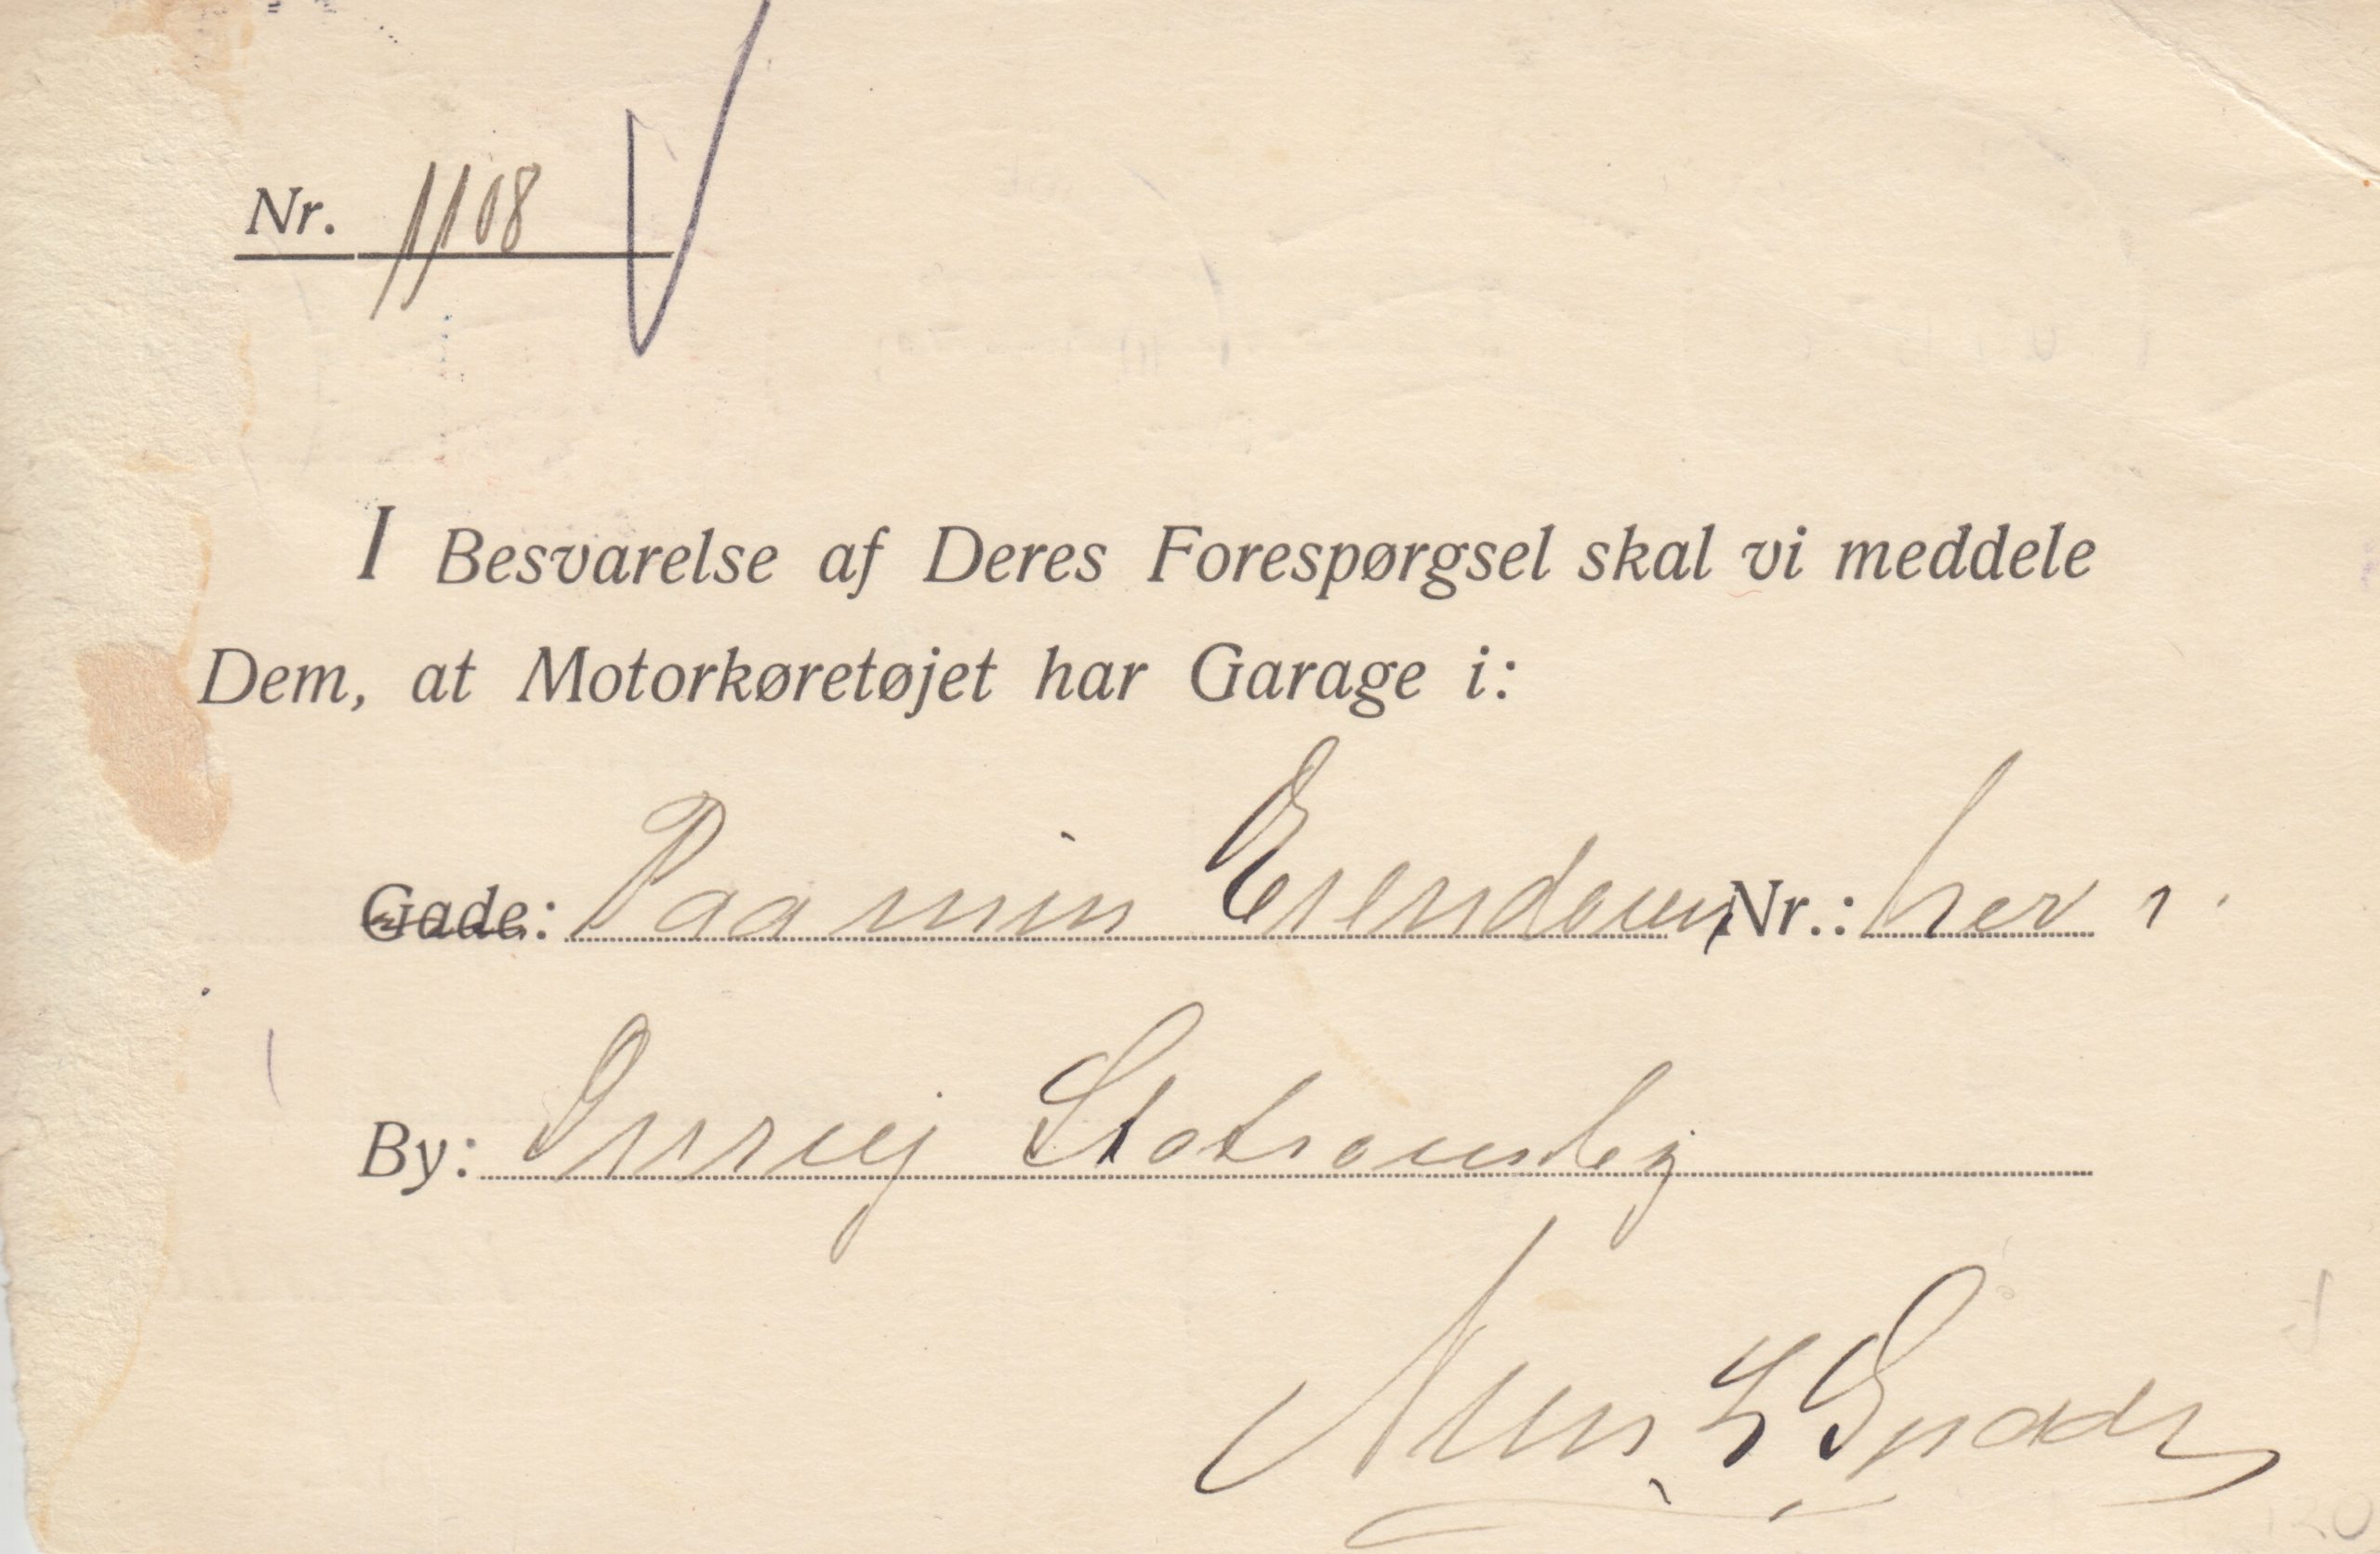 Nr. 1108
I Besvarelse af Deres Forespørgsel skal vi meddele
Dem, at Motorkøretøjet har Garage i:
Gade: Paa min Eiendom Nr.: her i
By: Stationsby